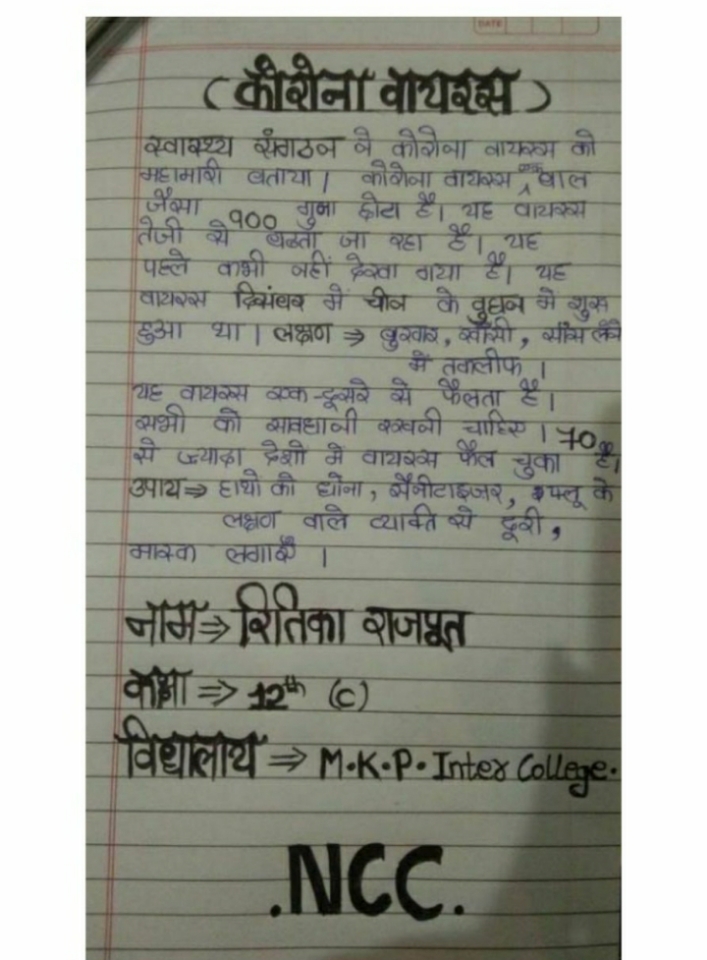 DATE
( कोरोना वायरस )
स्वास्थ्य संगठन ने कोरोना वायरस को
महामारी बताया। कोरोना वायरस एक बाल
जैसा 900 गुना छोटा है। यह वायरस
तेजी से बढता जा रहा है। यह
पहले कभी नहीं देखा गया है। यह
वायरस दिसंबर में चीन के वुहान में शुरू
हुआ था। लक्षण ⇒ बुखार, खाँसी, साँस लेने
में तकलीफ।
यह वायरस एक-दूसरे से फैलता है।
सभी को सावधानी रखनी चाहिए। 70
से ज्यादा देशो में वायरस फैल चुका है।
उपाय ⇒ हाथो को धोना, सैनीटाइजर, फ्लू के
लक्षण वाले व्यक्ति से दूरी,
मास्क लगाएँ।
नाम ⇒ रितिका राजपूत
कक्षा ⇒ 12th (C)
विद्यालाय ⇒ M.K.P. Inter College.
.NCC.